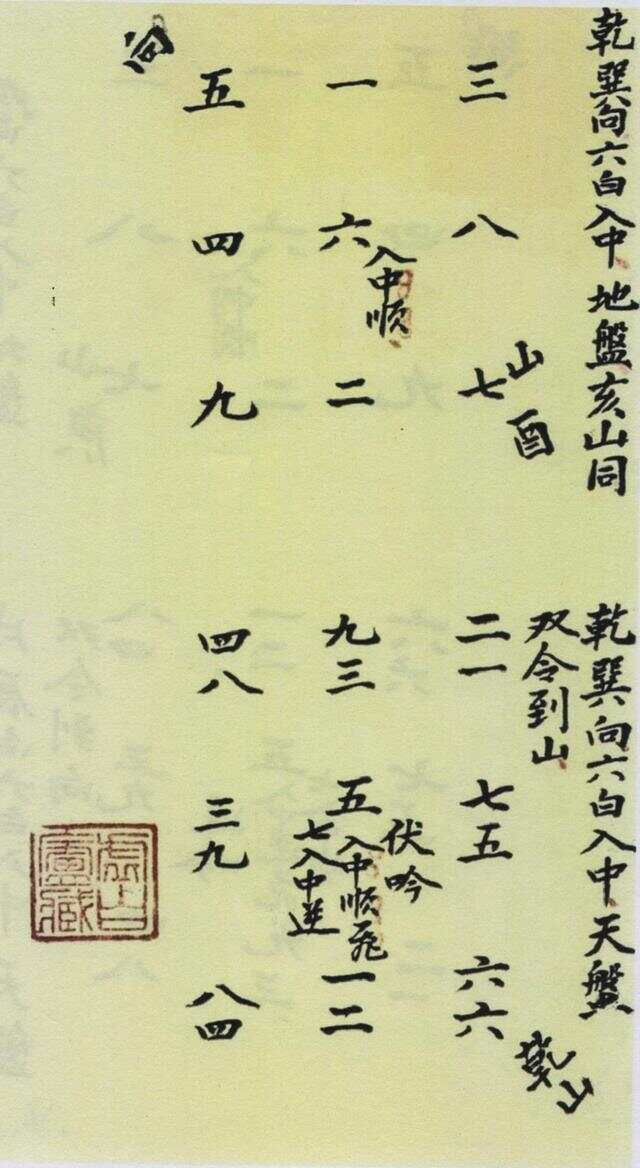 乾巽向六白入中 地盤亥山同
山酉
三 八 七
一 六入中顺 二
五 四 九
向
乾巽向六白入中天盤
双令到山
乾山
二一 七五 六六
伏吟
九三 五入中顺飛 一二
七入中逆
四八 三九 八四
虛白廬藏